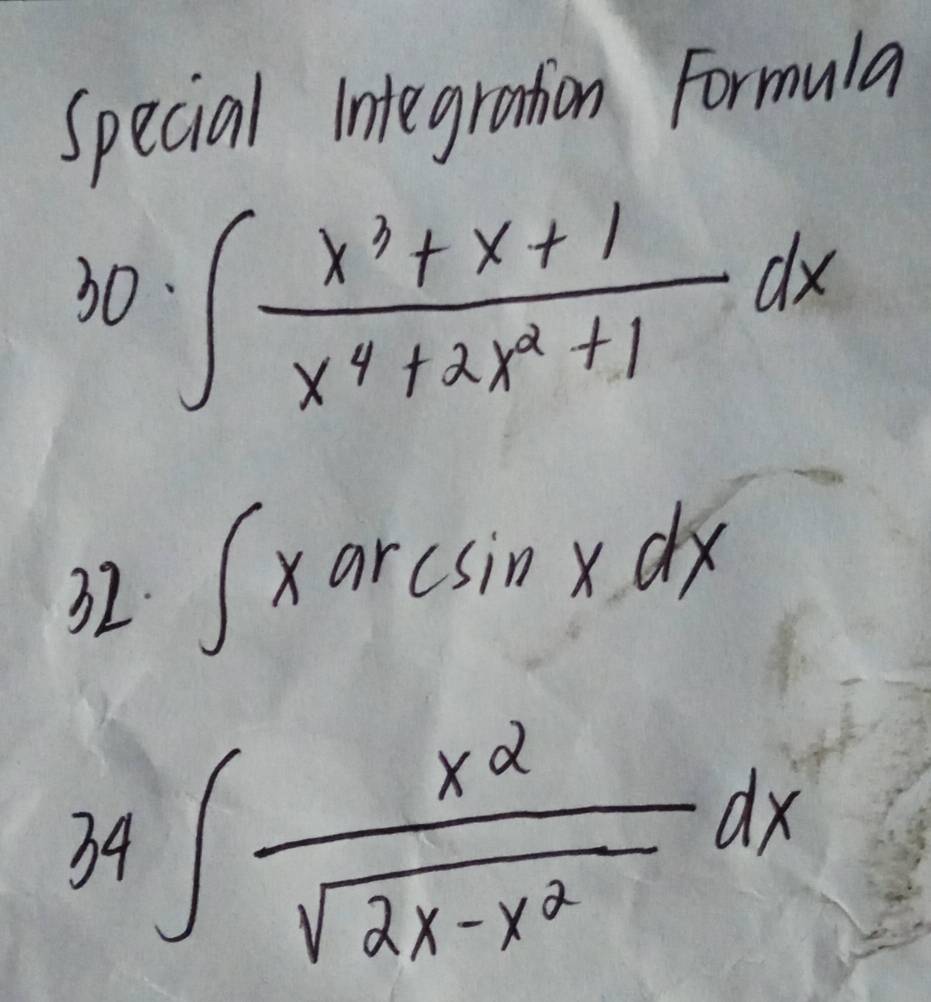 Special Integration Formula
30. ∫ (x³ + x + 1)/(x⁴ + 2x² + 1) dx
32. ∫ x arcsin x dx
34 ∫ x²/√(2x - x²) dx